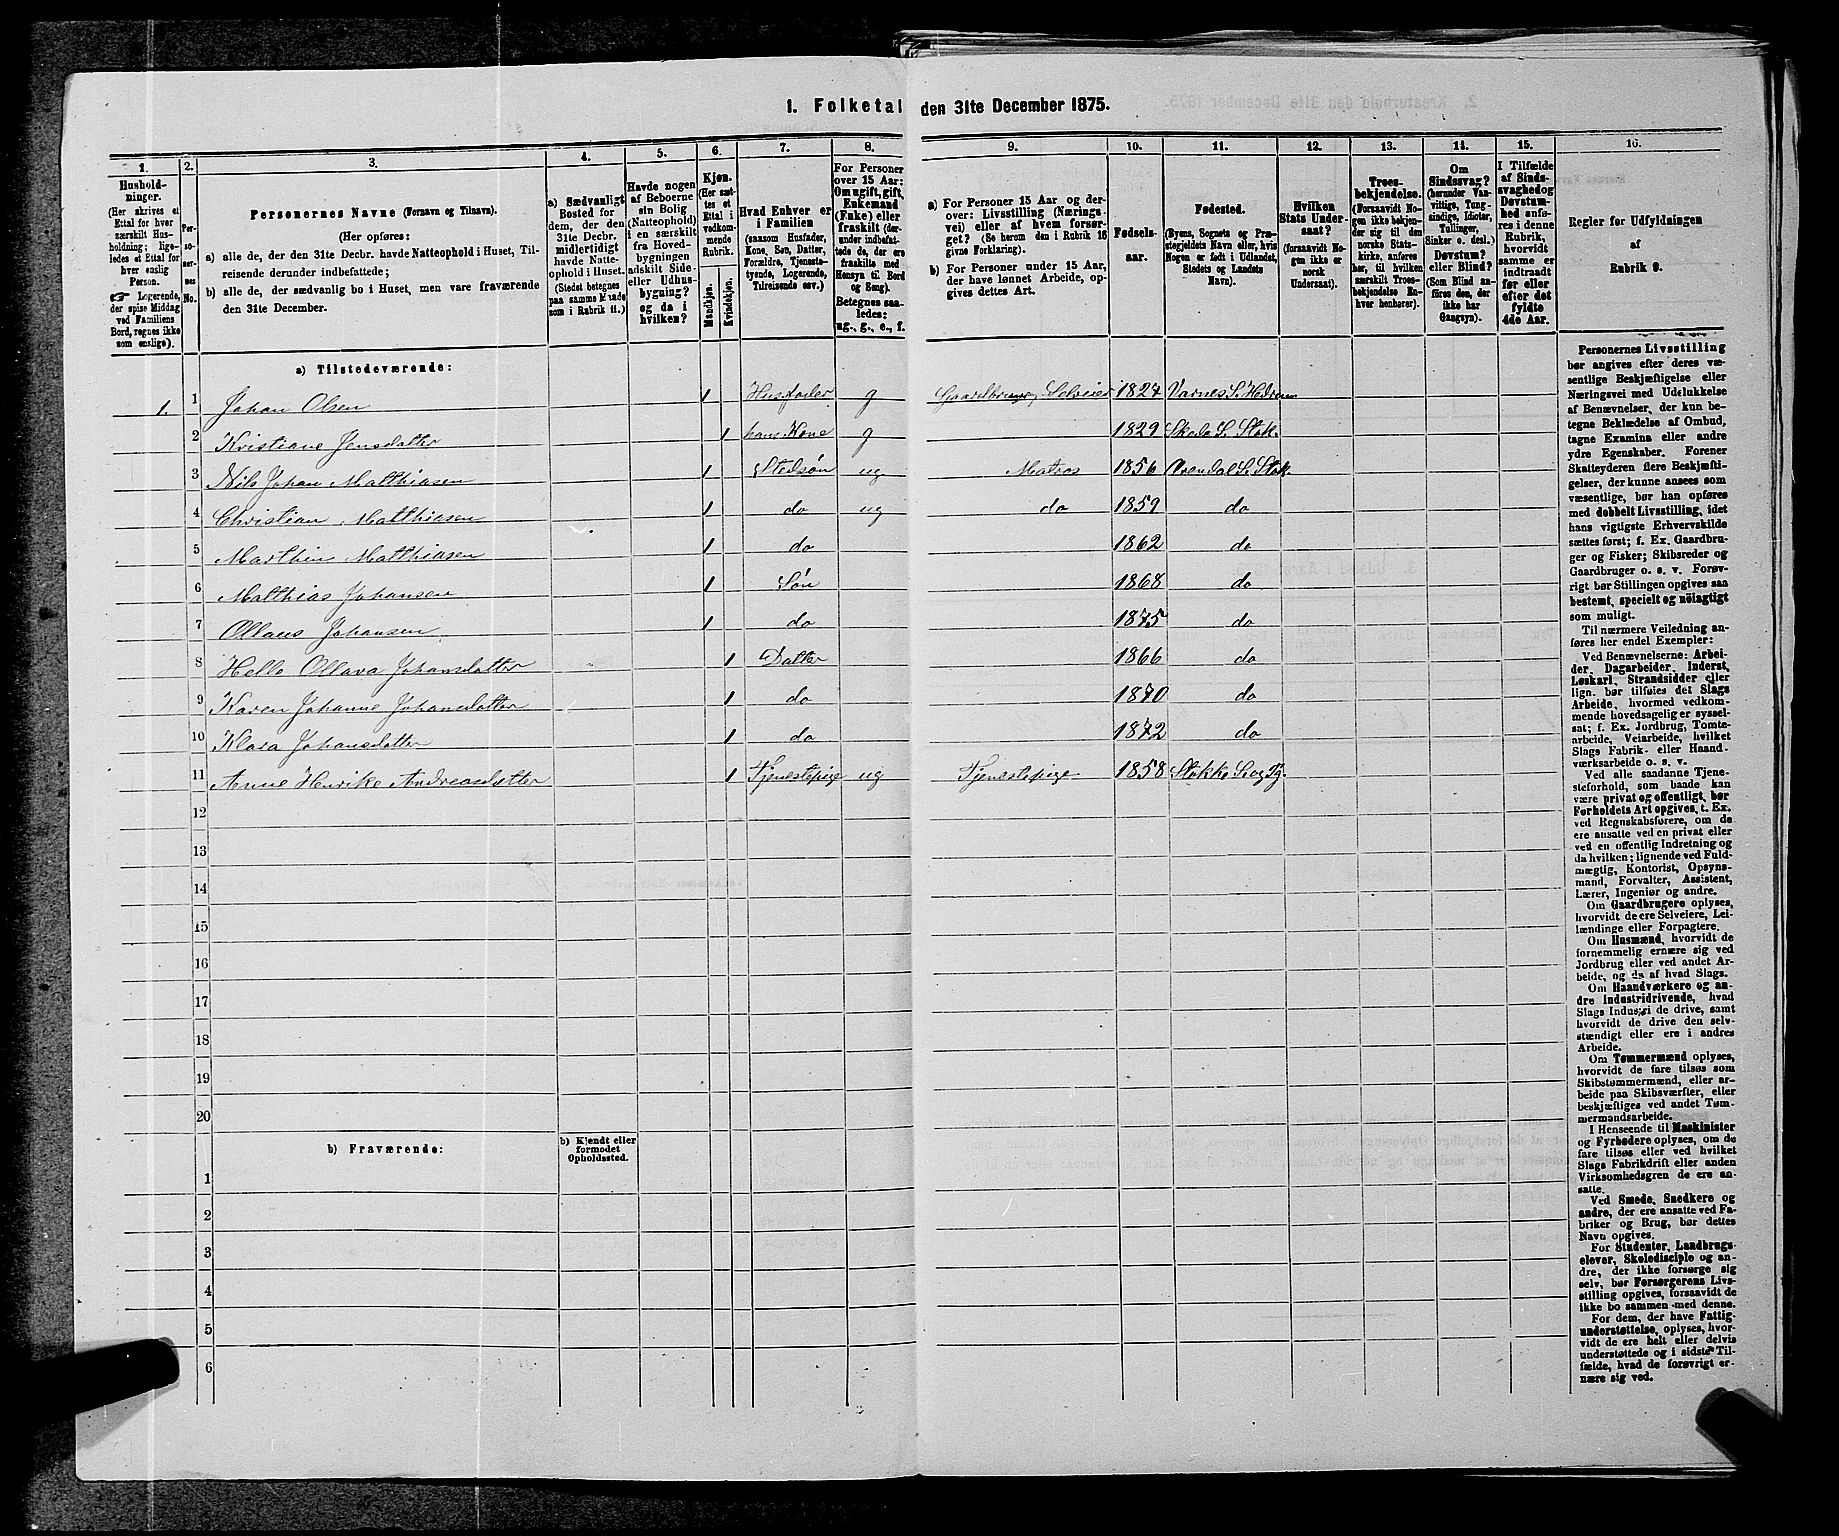 1. Folketal den 31te December 1875.
1. 2. 3. 4. 5. 6. 7. 8. 9. 10. 11. 12. 13. 14. 15. 16.
Hushold-
ninger.
(Her skrives et
Ettal for hver
særskilt Hus-
holdning; lige-
ledes et Ettal for
hver enslig
Person.
☞ Logerende,
der spise Middag
ved Familiens
Bord, regnes ikke
som enslige).
Per-
so-
ner-
nes
No.
Personernes Navne (Fornavn og Tilnavn).
(Her opføres:
a) alle de, der den 31te Decbr. havde Natteophold i Huset, Til-
reisende derunder indbefattede;
b) alle de, der sædvanlig bo i Huset, men vare fraværende
den 31te December.
a) Sædvanligt
Bosted for
dem, der den
31te Decbr.
midlertidigt
havde Natte-
ophold i Huset.
(Stedet betegnes
paa samme Maade
som i Rubrik 11.)
Havde nogen
af Beboerne
sin Bolig
(Natteophold)
i en særskilt
fra Hoved-
bygningen
adskilt Side-
eller Udhus-
bygning?
og da i
hvilken?
Kjøn.
(Her sæt-
tes et
Ettal i
vedkom-
mende
Rubrik.
Mandkjøn.
Kvindekjøn.
Hvad Enhver er
i Familien
(saasom Husfader,
Kone, Søn, Datter,
Forældre, Tjeneste-
tyende, Logerende,
Tilreisende osv.)
For Personer
over 15 Aar:
Om ugift, gift,
Enkemand
(Enke) eller
fraskilt (der-
under indbefat-
tede de, der ere
fraskilte med
Hensyn til Bord
og Seng).
Betegnes saa-
ledes:
ug., g., e., f.
a) For Personer 15 Aar og der-
over: Livsstilling (Nærings-
vei) eller af hvem forsør-
get? (Se herom den i Rubrik 16
givne Forklaring).
b) For Personer under 15 Aar,
der have lønnet Arbeide, op-
gives dettes Art.
Fødsels-
aar.
Fødested.
(Byens, Sognets og Præ-
stegjeldets Navn eller, hvis
Nogen er født i Udlandet,
Stedets og Landets
Navn).
Hvilken
Stats Under-
saat?
(forsaavidt No-
gen ikke er
norsk
Undersaat).
Troes-
bekjendelse.
(Forsaavidt No-
gen ikke bekjen-
der sig til den
norske Stats-
kirke, anføres
her, til hvilken
særskilt Troes-
bekjendelse En-
hver henhører).
Om
Sindssvag?
(herunder Van-
vittige, Tung-
sindige, Idioter,
Tullinger,
Sinker o. desl.)
Døvstum?
eller Blind?
(Som Blind an-
føres den, der
ikke har
Gangsyn).
I Tilfælde
af Sinds-
svaghed og
Døvstum-
hed anfø-
res i denne
Rubrik,
hvorvidt
samme er
indtraadt
før eller
efter det
fyldte
4de Aar.
Regler for Udfyldningen
af
Rubrik 9.
a) Tilstedeværende:
1. 1 Johan Olsen 1 Husfader g Gaardbruger, Selveier 1827
2 Kristiane Jensdatter 1 hans Kone g 1829
3 Nils Johan Matthiasen 1 Stedsøn ug Matros 1856 Arendal S. Stok.
4 Christian Matthiasen 1 do ug do 1859 do
5 Marthin Matthiasen 1 do 1862 do
6 Matthias Johansen 1 Søn 1868 do
7 Ollaus Johansen 1 do 1875 do
8 Helle Ollava Johansdatter 1 Datter 1866 do
9 Karen Johanne Johansdatter 1 do 1870 do
10 Klara Johansdatter 1 do 1872 do
11 Anne Henrike Andreasdatter 1 Tjenestepige ug Tjenestepige 1858 Stokke S. og Pg.
12
13
14
15
16
17
18
19
20
b) Fraværende:
b) Kjendt eller
formodet
Opholdssted.
1
2
3
4
5
6
Personernes Livsstilling
bør angives efter deres væ-
sentlige Beskjæftigelse eller
Næringsvei med Udelukkelse
af Benævnelser, der kun be-
tegne Beklædelse af Ombud,
tagne Examina eller andre
ydre Egenskaber. Forener
Skatteyderen flere Beskjæfti-
gelser, der kunne ansees som
væsentlige, bør han opføres
med dobbelt Livsstilling, idet
hans vigtigste Erhvervskilde
sættes først; f. Ex. Gaardbru-
ger og Fisker; Skibsreder og
Gaardbruger o. s. v. Forøv-
rigt bør Stillingen opgives saa
bestemt, specielt og nöiagtigt
som muligt.
Til nærmere Veiledning an-
føres her endel Exempler:
Ved Benævnelserne: Arbei-
der, Dagarbeider, Inderst,
Løskarl, Strandsidder eller
lign. bør tilføies det Slags
Arbeide, hvormed vedkom-
mende hovedsagelig er syssel-
sat; f. Ex. Jordbrug, Tomte-
arbeide, Veiarbeide, hvilket
Slags Fabrik- eller Haand-
værksarbeide o. s. v.
Ved alle saadanne Tjene-
steforhold, som baade kan
være privat og offentligt, bør
Forholdets Art opgives, t. Ex.
ved Regnskabsførere, om de
ere ansatte ved en privat eller
ved en offentlig Indretning og
da hvilken; lignende ved Fuld-
mægtig, Kontorist, Opsyns-
mand, Forvalter, Assistent,
Lærer, Ingeniør og andre.
Om Gaardbrugere oplyses,
hvorvidt de ere Selveiere, Lei-
lændinge eller Forpagtere.
Om Husmænd, hvorvidt de
fornemmelig ernære sig ved
Jordbrug eller ved andet Ar-
beide, og da af hvad Slags.
Om Haandværkere og an-
dre Industridrivende, hvad
Slags Industri de drive, samt
hvorvidt de drive den selv-
stændigt eller ere i andres
Arbeide.
Om Tømmermænd oplyses,
hvorvidt de fare tilsøs som
Skibstømmermænd, eller ar-
beide paa Skibsværfter, eller
beskjæftiges ved andet Tøm-
mermandsarbeide.
I Henseende til Maskinister
og Fyrbødere oplyses, om de
fare tilsøs eller ved hvilket
Slags Fabrikdrift eller anden
Virksomhedsgren de ere an-
satte.
Ved Smede, Snedkere og
andre, der ere ansatte ved Fa-
briker og Brug, bør dettes
Navn opgives.
For Studenter, Landbrugs-
elever, Skoledisciple og an-
dre, der ikke forsørge sig
selv, bør Forsørgerens Livs-
stilling opgives, forsaavidt de
ikke bo sammen med denne.
For dem, der have Fattig-
understøttelse, oplyses, hvor-
vidt de ere helt eller delvis
understøttede og i sidste Til-
fælde, hvad de forøvrigt er-
nære sig ved.